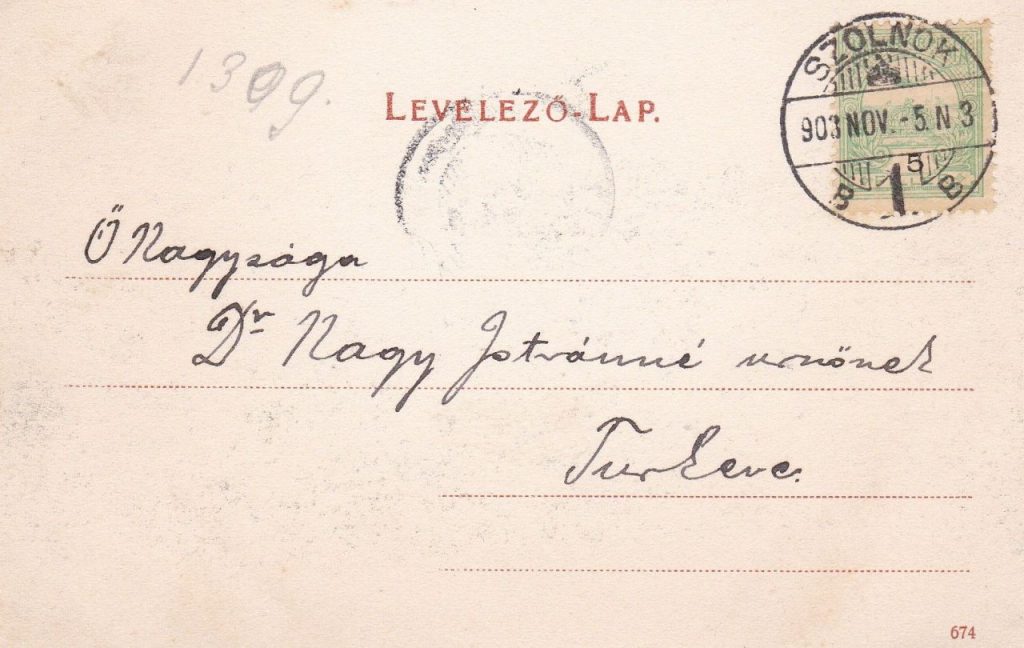 1399.
LEVELEZŐ-LAP.
SZOLNOK
903 NOV. -5. N 3
5
B 1 B
Ő Nagysága
Dr Nagy Istvánné urnőnek
Turkeve.
674